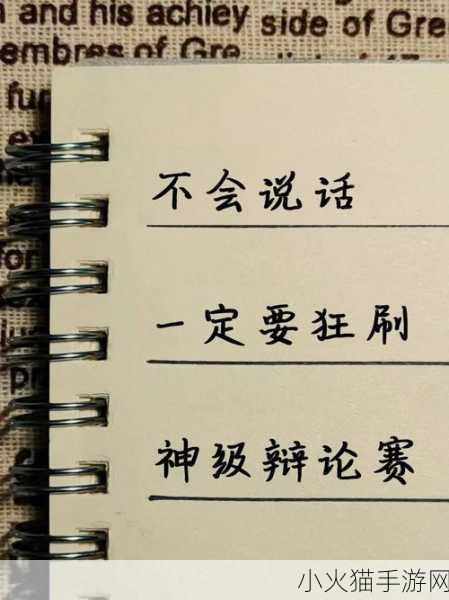 and his achiev side of Gre
embres of Gre
不会说话
一定要狂刷
神级辩论赛
小火猫手游网